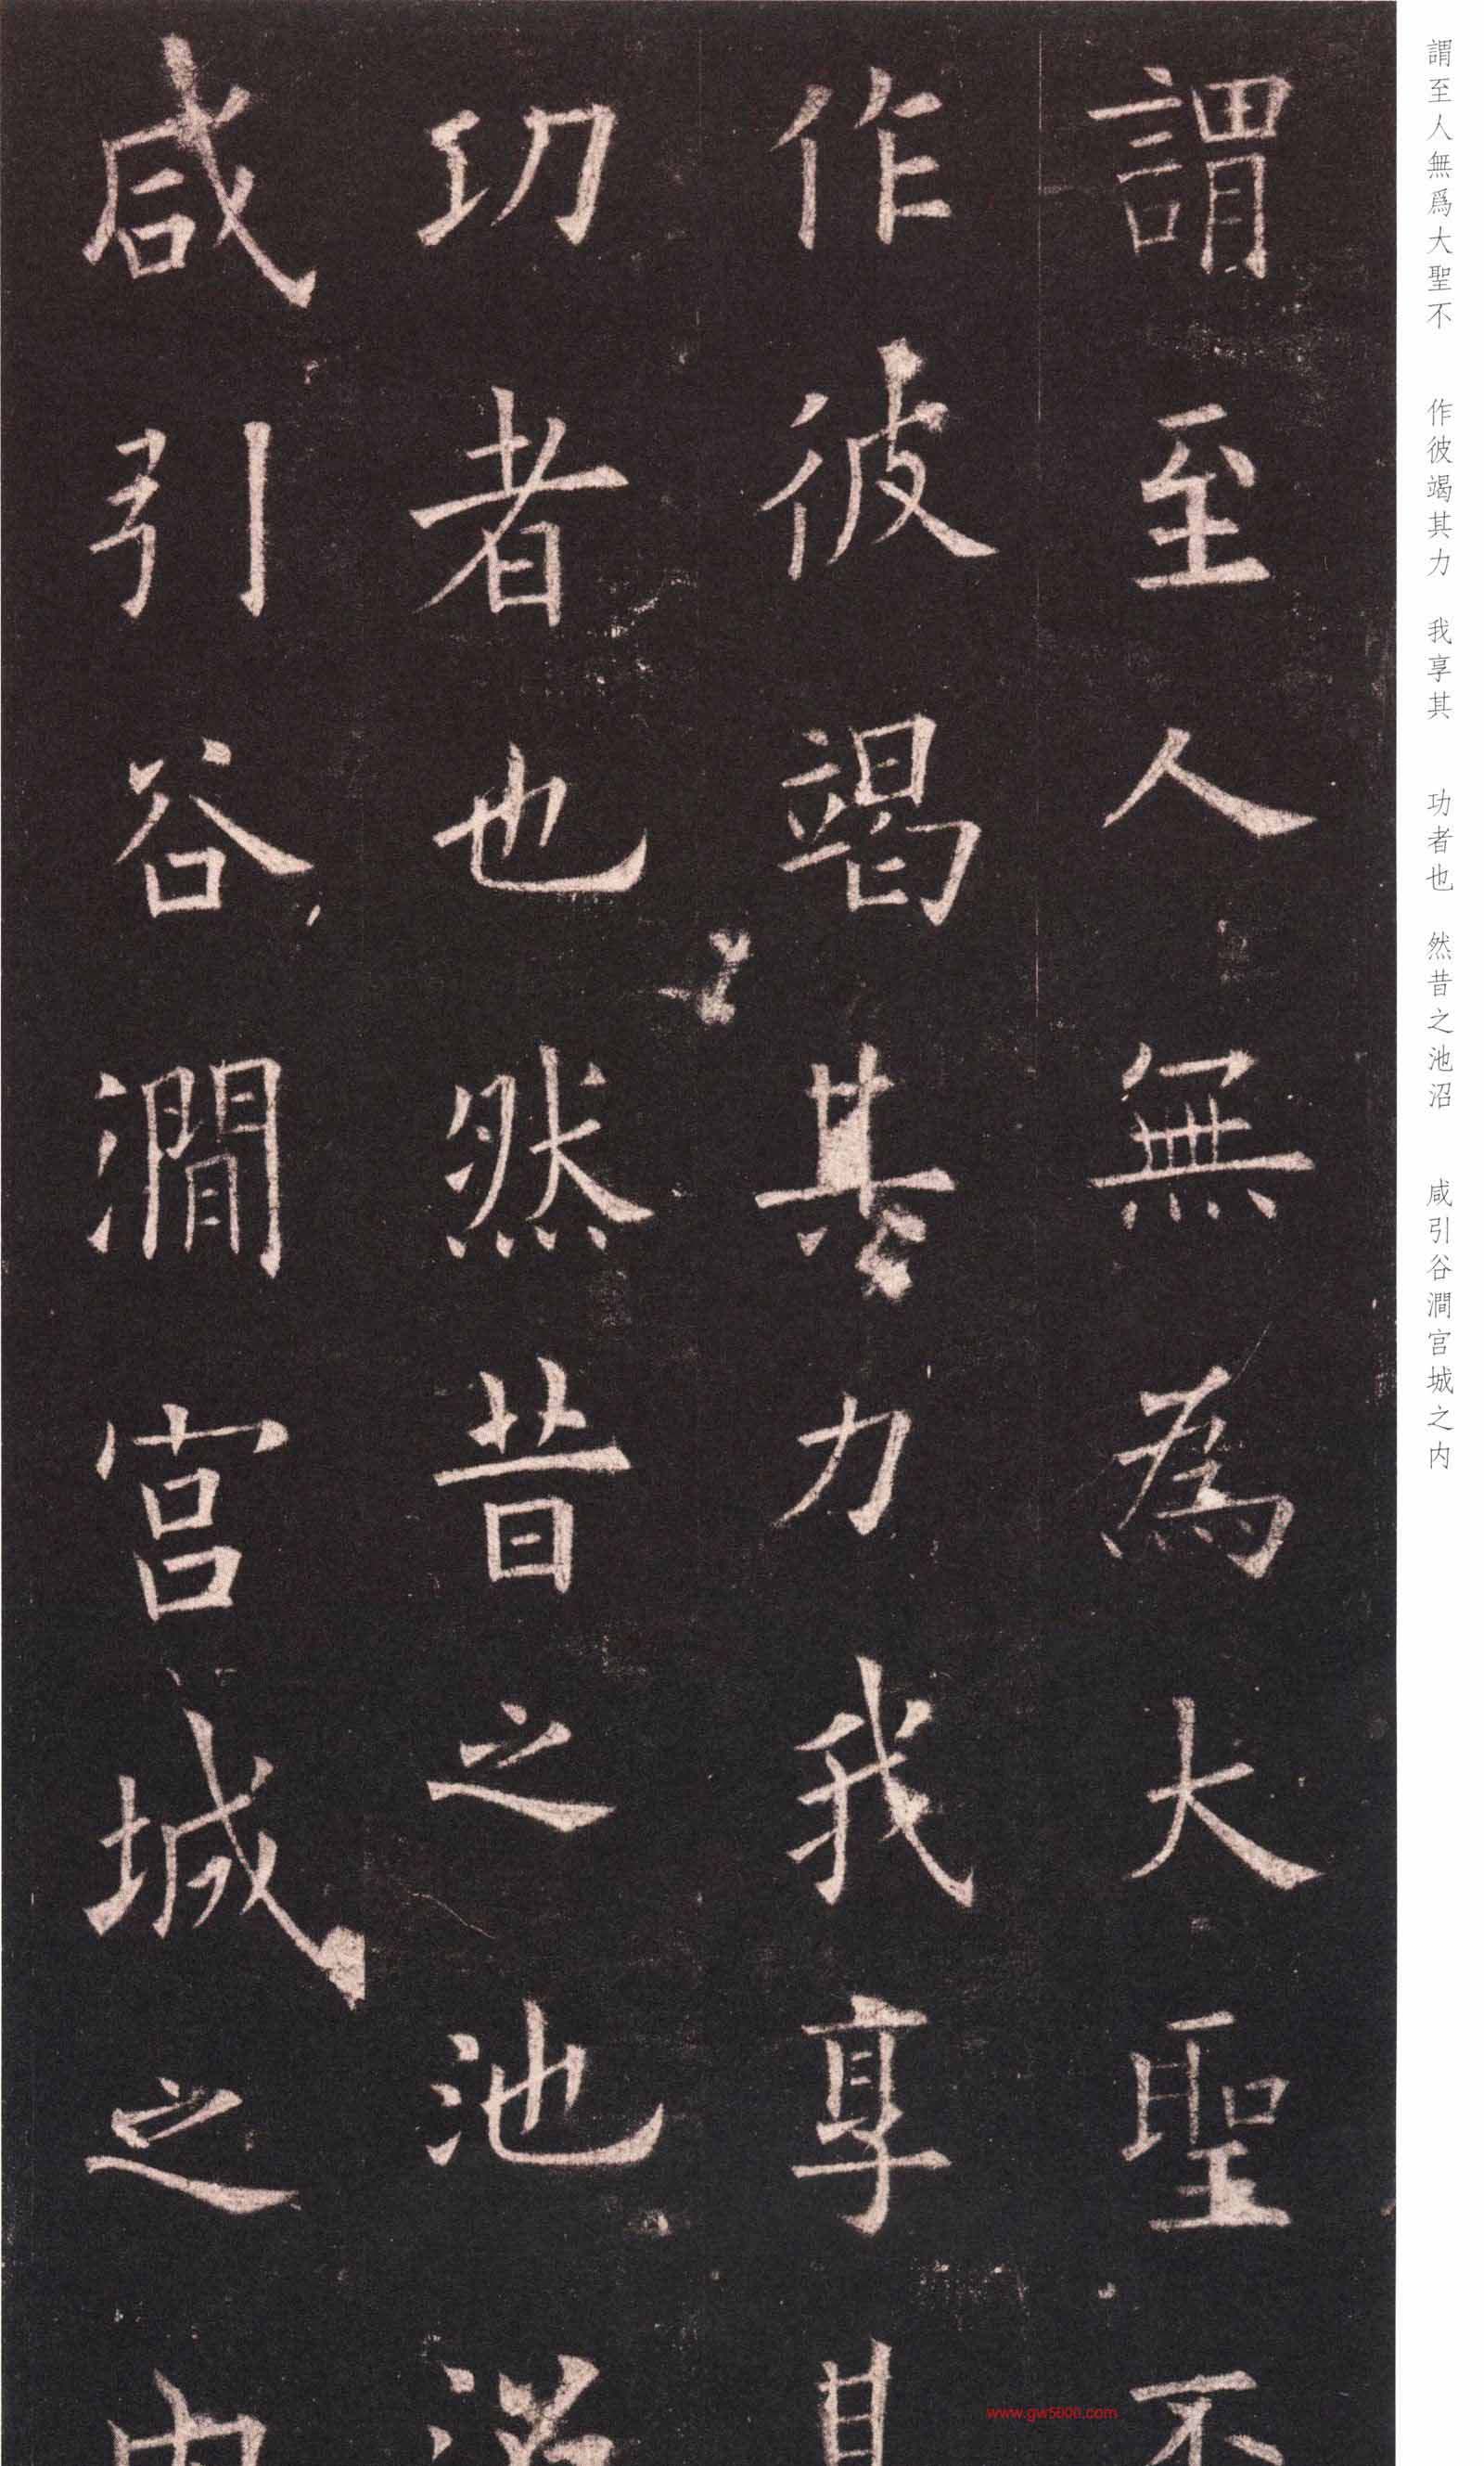 謂至人無為大聖不
作彼竭其力我享其
功者也然昔之池沼
咸引谷澗宫城之内
謂至人無爲大聖不 作彼竭其力 我享其 功者也 然昔之池沼 咸引谷澗宫城之内
www.gw5000.com